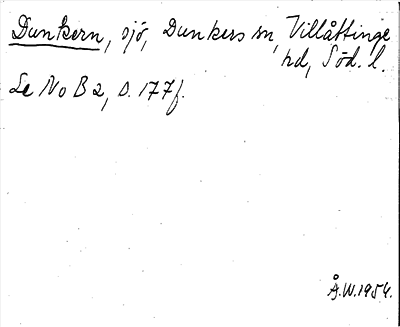 Dunkern, sjö, Dunkers sn, Villåttinge
hd, Söd. l.
Se No B 2, s. 177 f.
Å.W. 1954.